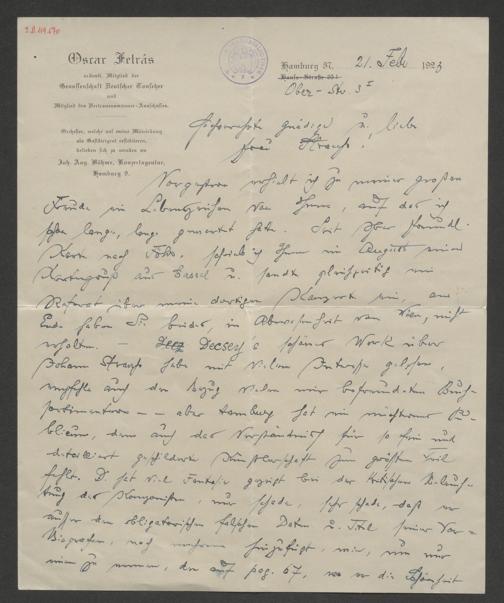 Oscar Fetrás
ordentl. Mitglied der
Genossenschaft Deutscher Tonsetzer
und
Mitglied des Vertrauensmänner-Ausschusses.
Orchester, welche auf meine Mitwirkung
als Gastdirigent reflektieren,
belieben sich zu wenden an
Joh. Aug. Böhme, Konzertagentur,
Hamburg 9.
Hamburg 37, 21. Feb 1923
Ober-Str. 3 I
gnädige u. liebe
Frau Strauss!
Vorgestern erhielt ich zu meiner großen
Freude ein Lebenszeichen von Ihnen, auf das ich
schon lange, lange gewartet hatte. Seit Ihrer freundl.
Karte nach Föhr, schrieb ich Ihnen im August einen
Kartengruß aus Cassel u. sandte gleichzeitig ein
Referat über meine dortigen Konzerte ein, am
Ende haben Sie beides, in Abwesenheit von Wien, nicht
erhalten. — Decsey's schönes Werk über
Johann Strauss habe mit vielem Interesse gelesen,
empfehle auch den Bezug vielen mir befreundeten Buch-
— aber Hamburg hat ein nüchternes Pu-
blikum, dem auch das Verständniß für so fein und
detailliert geschilderte Künstlerschaft zum größten Teil
fehle. D. hat viel Fantasie gezeigt bei der kritischen Beleuch-
tung des Komponisten, nur schade, sehr schade, daß er
außer den obligatorischen falschen Daten u. Titel seiner Vor-
Biografen, noch mehrere hinzufügt, wie, um nur
einen zu nennen, den auf pag. 67, wo er die